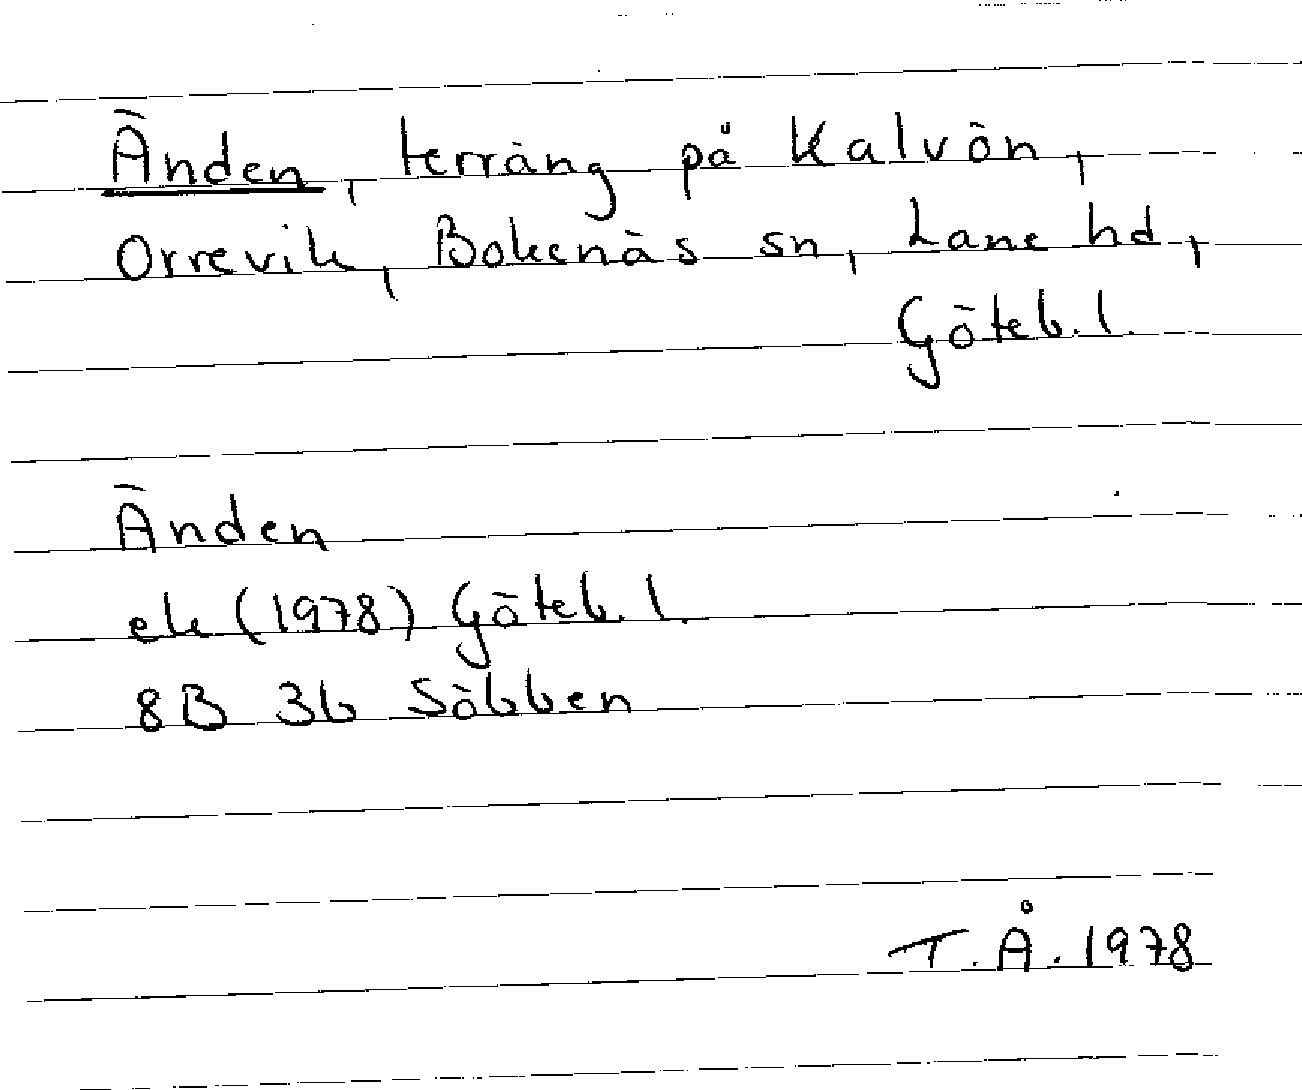 Änden, terräng på Kalvön,
Orrevik, Bokenäs sn, Lane hd,
Göteb. l.
Änden
ek (1978) Göteb. l.
8B 3b Säbben
T. Å. 1978